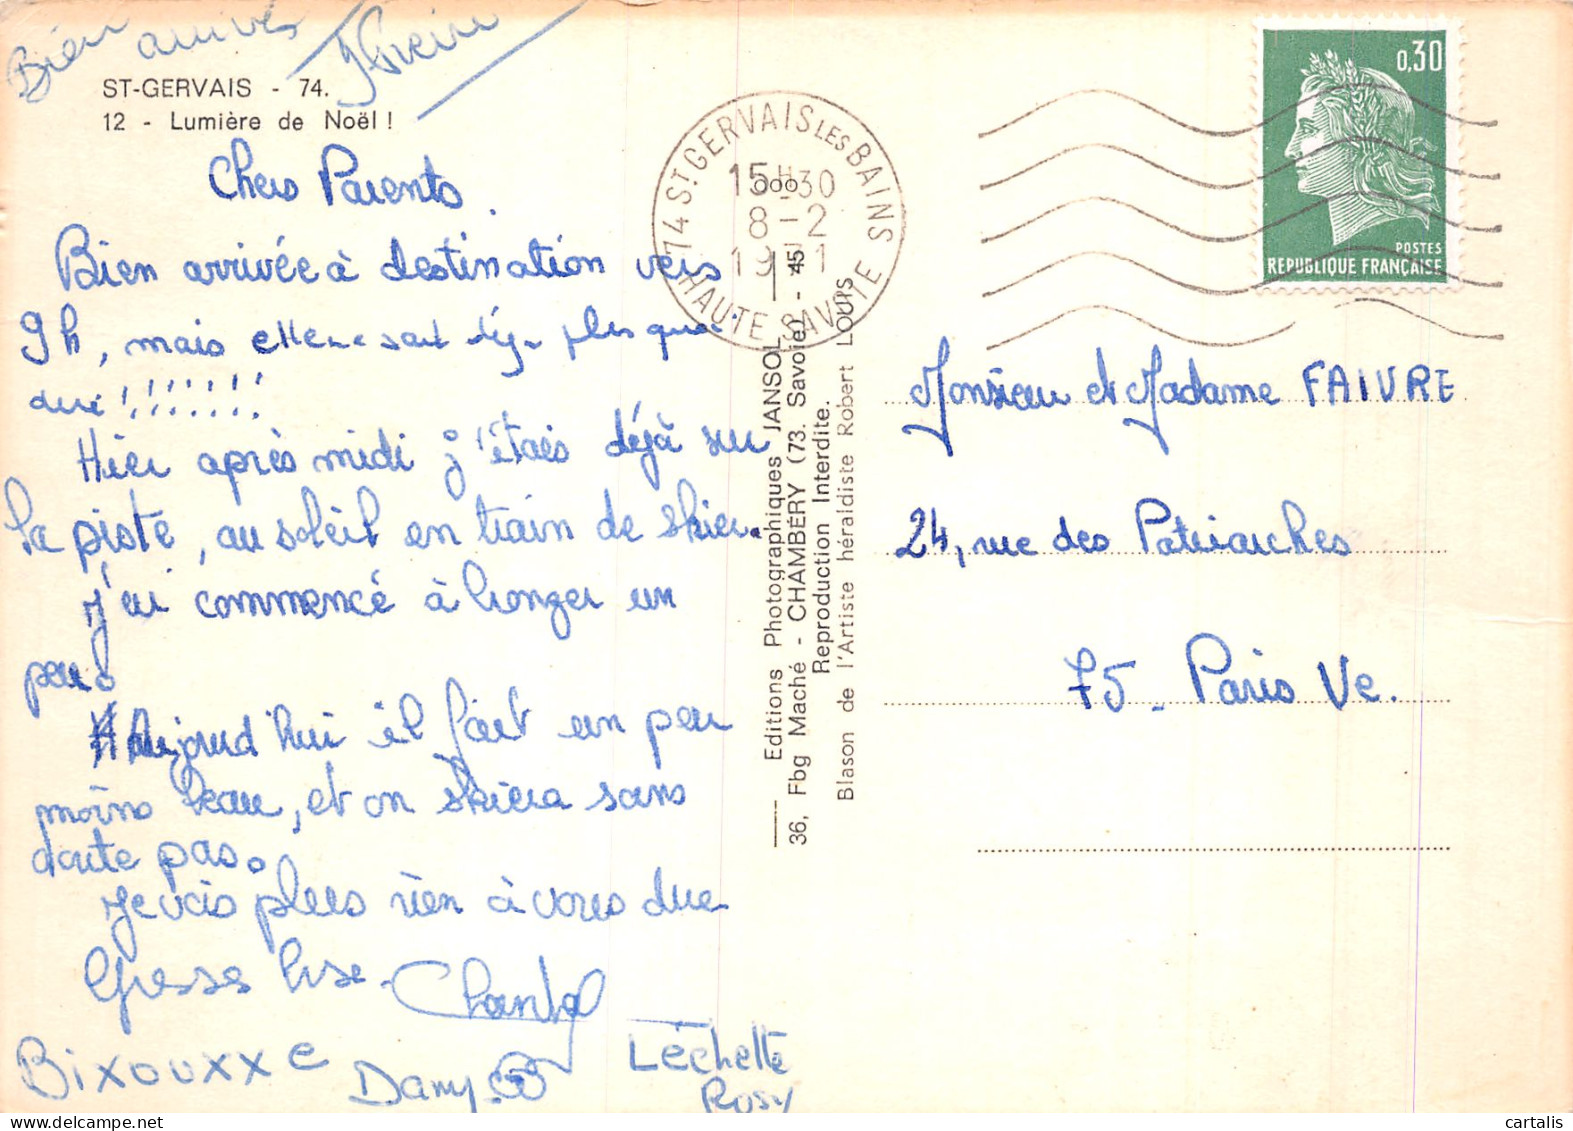 Bien arrivés
ST-GERVAIS - 74.
12 - Lumière de Noël !
Chers Parents.
Bien arrivée à destination vers
9h, mais elle ne sait déjà plus que
dire !!!!!!!!
Hier après midi j'étais déjà sur
la piste, au soleil en train de skier.
j'ai commencé à bronzer un
peu.
Aujourd'hui il fait un peu
moins beau, et on skiera sans
doute pas.
Je vais plus rien à vous dire
Grosses bise. Chantal
Bixouxxe
Dany
Léchette
Rosy
74 ST GERVAIS LES BAINS
15H30
8-2
1971
HAUTE SAVOIE
0,30
POSTES
REPUBLIQUE FRANÇAISE
Editions Photographiques JANSOL
36, Fbg Maché - CHAMBÉRY (73. Savoie) - 45
Reproduction Interdite.
Blason de l'Artiste héraldiste Robert LOUIS
Monsieur et Madame FAIVRE
24, rue des Patriarches
75 - Paris Ve.
cartalis
www.delcampe.net